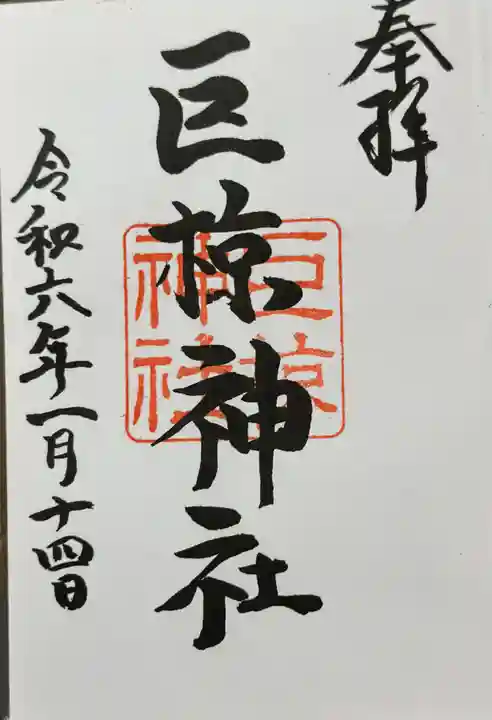 奉拝
巨椋神社
巨椋
神社
令和六年一月十四日